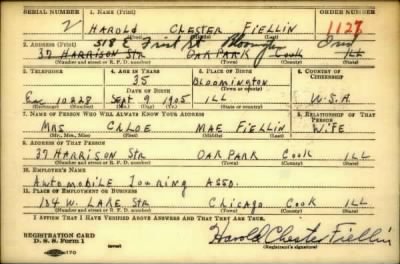 SERIAL NUMBER 1. NAME (Print) ORDER NUMBER
HAROLD CHESTER FIELLIN 1127
(First) (Middle) (Last)
2. ADDRESS (Print) 318 E First St
37 HARRISON STR OAK PARK Cook ILL
(Number and street or R. F. D. number) (Town) (County) (State)
3. TELEPHONE 4. AGE IN YEARS 5. PLACE OF BIRTH 6. COUNTRY OF CITIZENSHIP
35 Bloomington
DATE OF BIRTH (Town or county)
10228 Sept 9 1905 ILL U.S.A.
(Exchange) (Number) (Mo.) (Day) (Yr.) (State or country)
7. NAME OF PERSON WHO WILL ALWAYS KNOW YOUR ADDRESS
MRS CHLOE MAE FIELLIN WIFE
(Mr., Mrs., Miss) (First) (Middle) (Last)
9. ADDRESS OF THAT PERSON
37 HARRISON STR OAK PARK Cook ILL
(Number and street or R. F. D. number) (Town) (County) (State)
10. EMPLOYER'S NAME
AUTOMOBILE TOURING ASSO.
11. PLACE OF EMPLOYMENT OR BUSINESS
134 W. LAKE STR Chicago Cook ILL
(Number and street or R. F. D. number) (Town) (County) (State)
I AFFIRM THAT I HAVE VERIFIED ABOVE ANSWERS AND THAT THEY ARE TRUE.
REGISTRATION CARD
D. S. S. Form 1 (over) Harold Chester Fiellin
(Registrant's signature)